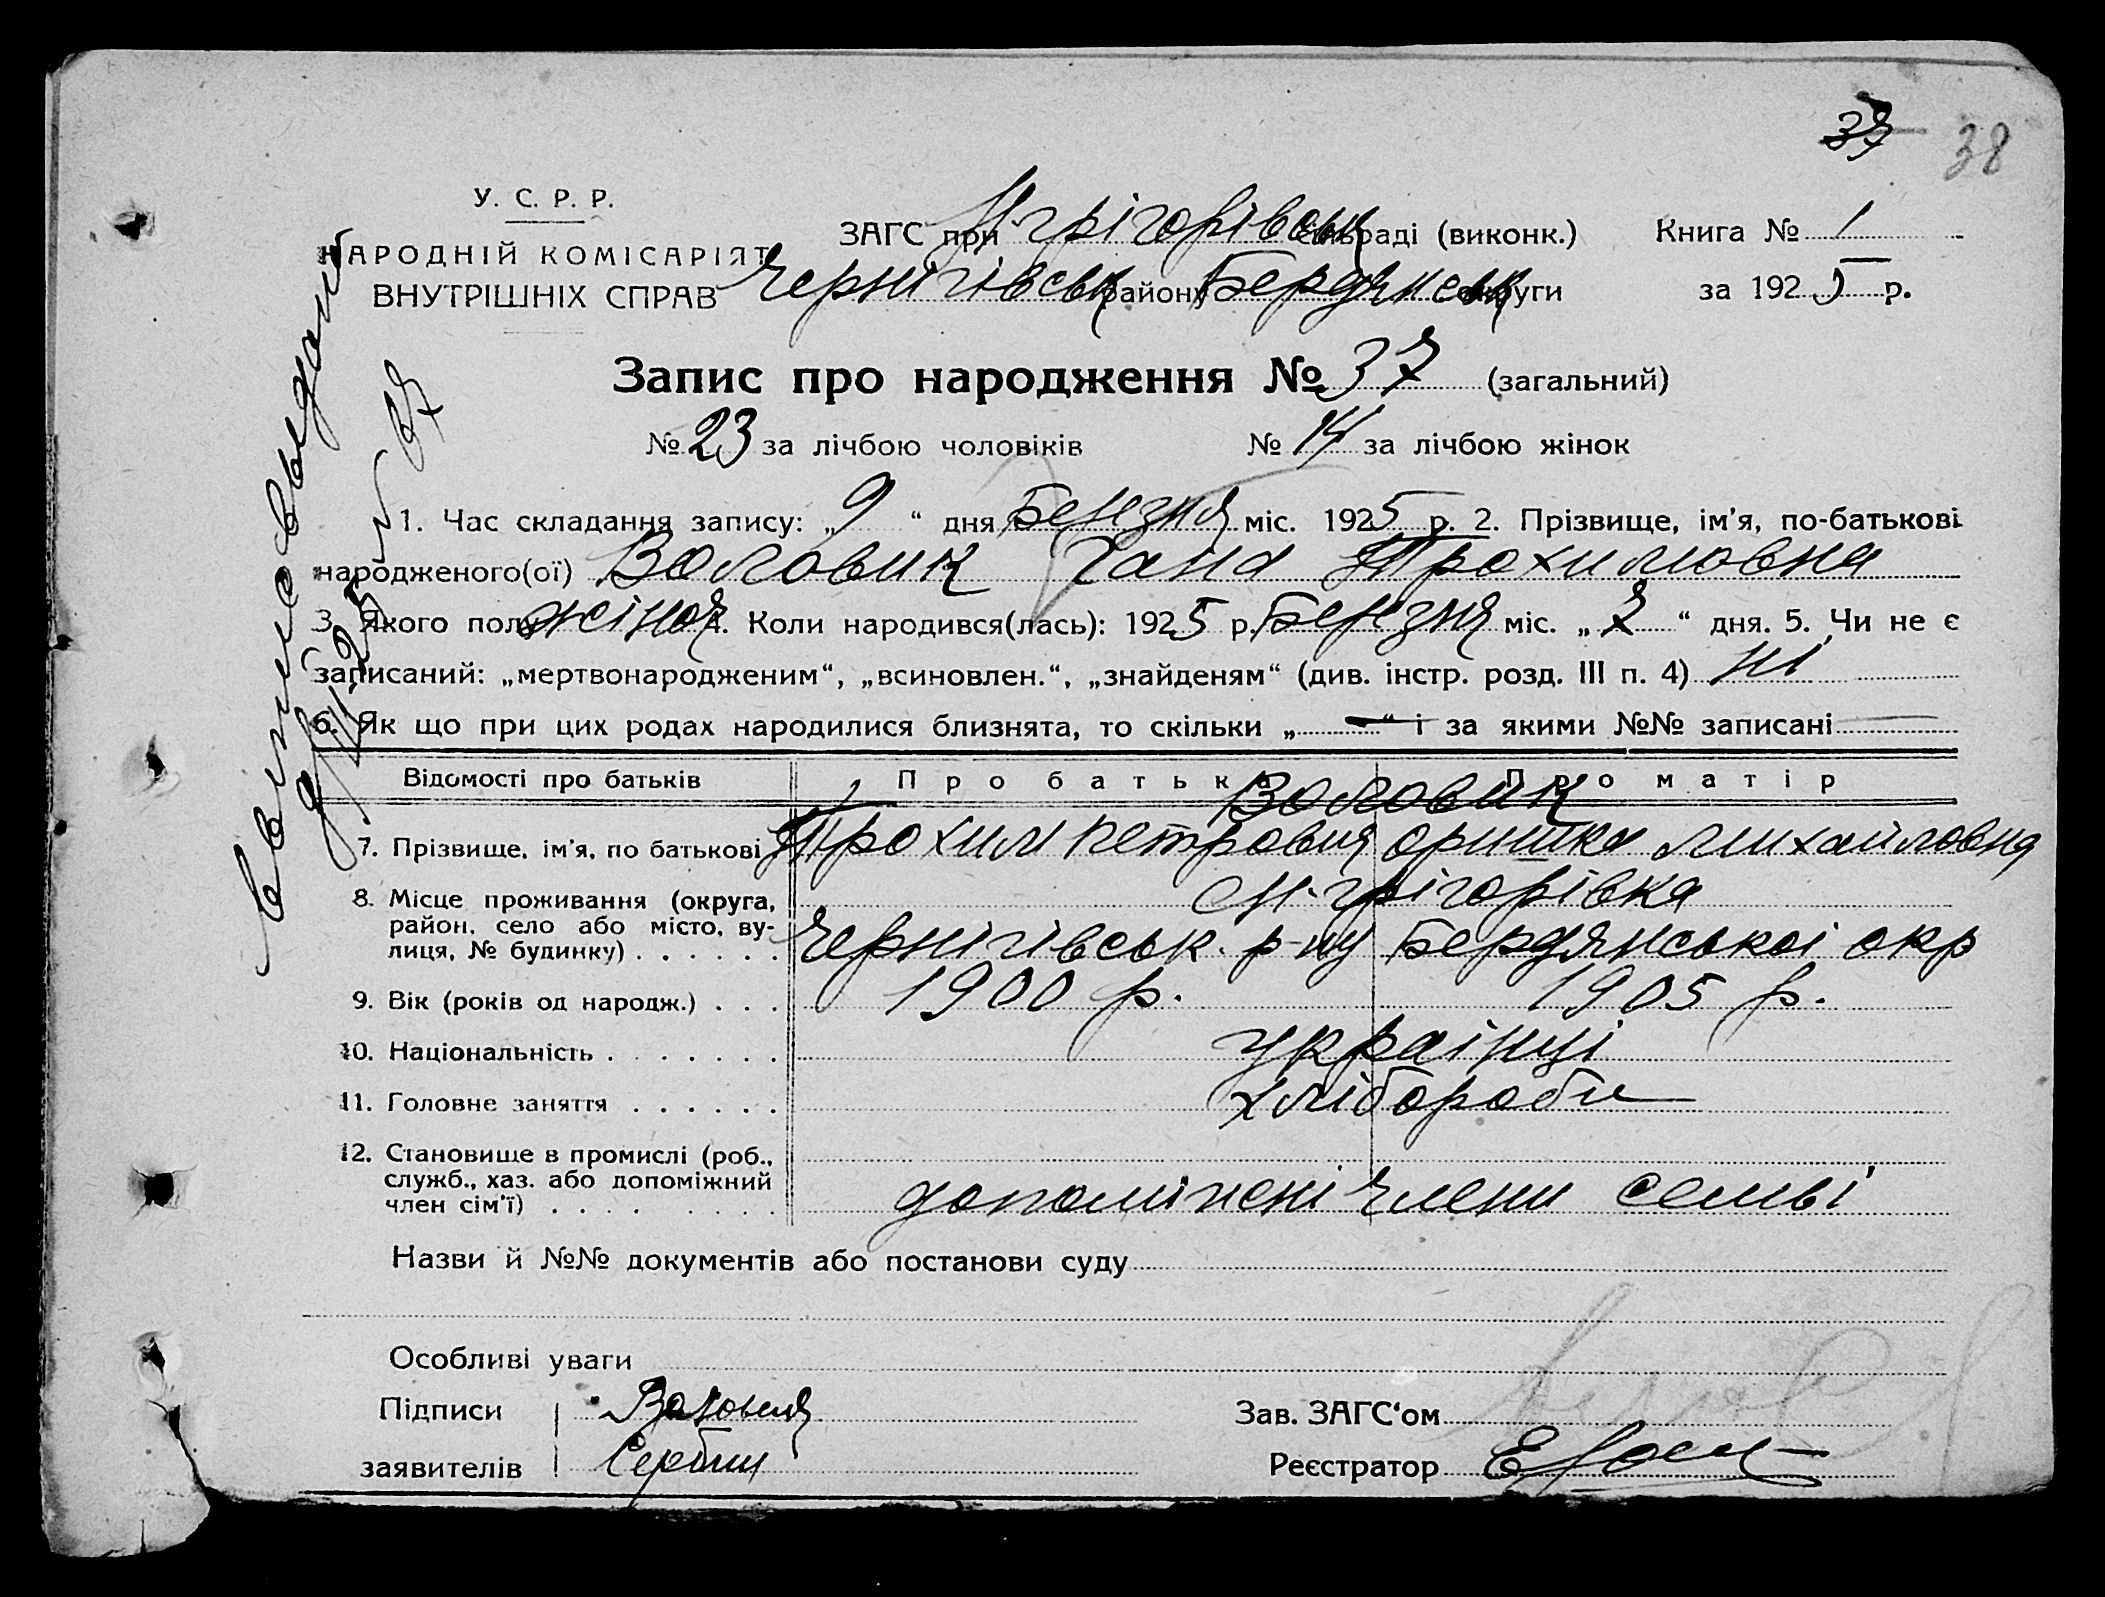 37 38
У. С. Р. Р.
НАРОДНІЙ КОМІСАРІЯТ
ВНУТРІШНІХ СПРАВ
ЗАГС при Н-грігорівськ сільраді (виконк.) Книга № 1
Чернігівськ району Бердянськ округи за 1925 р.
Запис про народження № 37 (загальний)
№ 23 за лічбою чоловіків № 14 за лічбою жінок
1. Час складання запису: „9“ дня Березня міс. 1925 р. 2. Прізвище, ім'я, по-батькові
народженого(ої) Воловик Гана Трохимовна
3. Якого полу жіноч 4. Коли народився(лась): 1925 р. Березня міс. „2“ дня. 5. Чи не є
записаний: „мертвонародженим“, „всиновлен.“, „знайденям“ (див. інстр. розд. III п. 4) ні
6. Як що при цих родах народилися близнята, то скільки „—“ і за якими №№ записані —
Відомості про батьків Про батька Про матір
Воловик
7. Прізвище, ім'я, по батькові Трохим петрович оришка михайловна
8. Місце проживання (округа, район, село або місто, ву-лиця, № будинку) . . . . . . Н-грігорівка
Чернігівськ. р-ну Бердянськоі окр
9. Вік (років од народж.) . . . 1900 р. 1905 р.
10. Національність . . . . . . . українці
11. Головне заняття . . . . . . хлібороби
12. Становище в промислі (роб., служб., хаз. або допоміжний член сім'ї) . . . . . . . . допоміжні члени семьі
Назви й №№ документів або постанови суду
Особливі уваги
Підписи Воловик
заявителів Сербин
Зав. ЗАГС'ом
Реєстратор